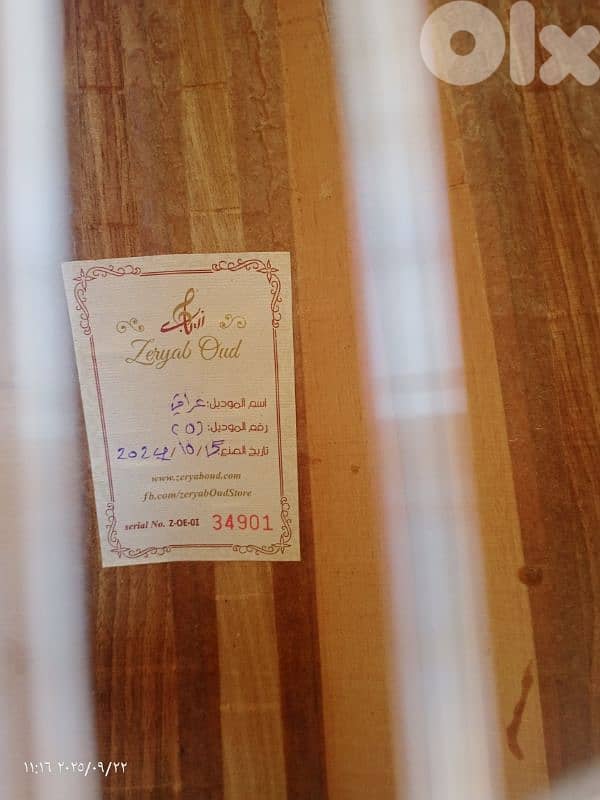 Olx
زرياب
Zeryab Oud
اسم الموديل: عراقي
رقم الموديل: (٥)
تاريخ الصنع
www.zeryaboud.com
fb.com/zeryabOudStore
serial No. Z-OE-01 34901
١١:١٦ ٢٠٢٥/٠٩/٢٢